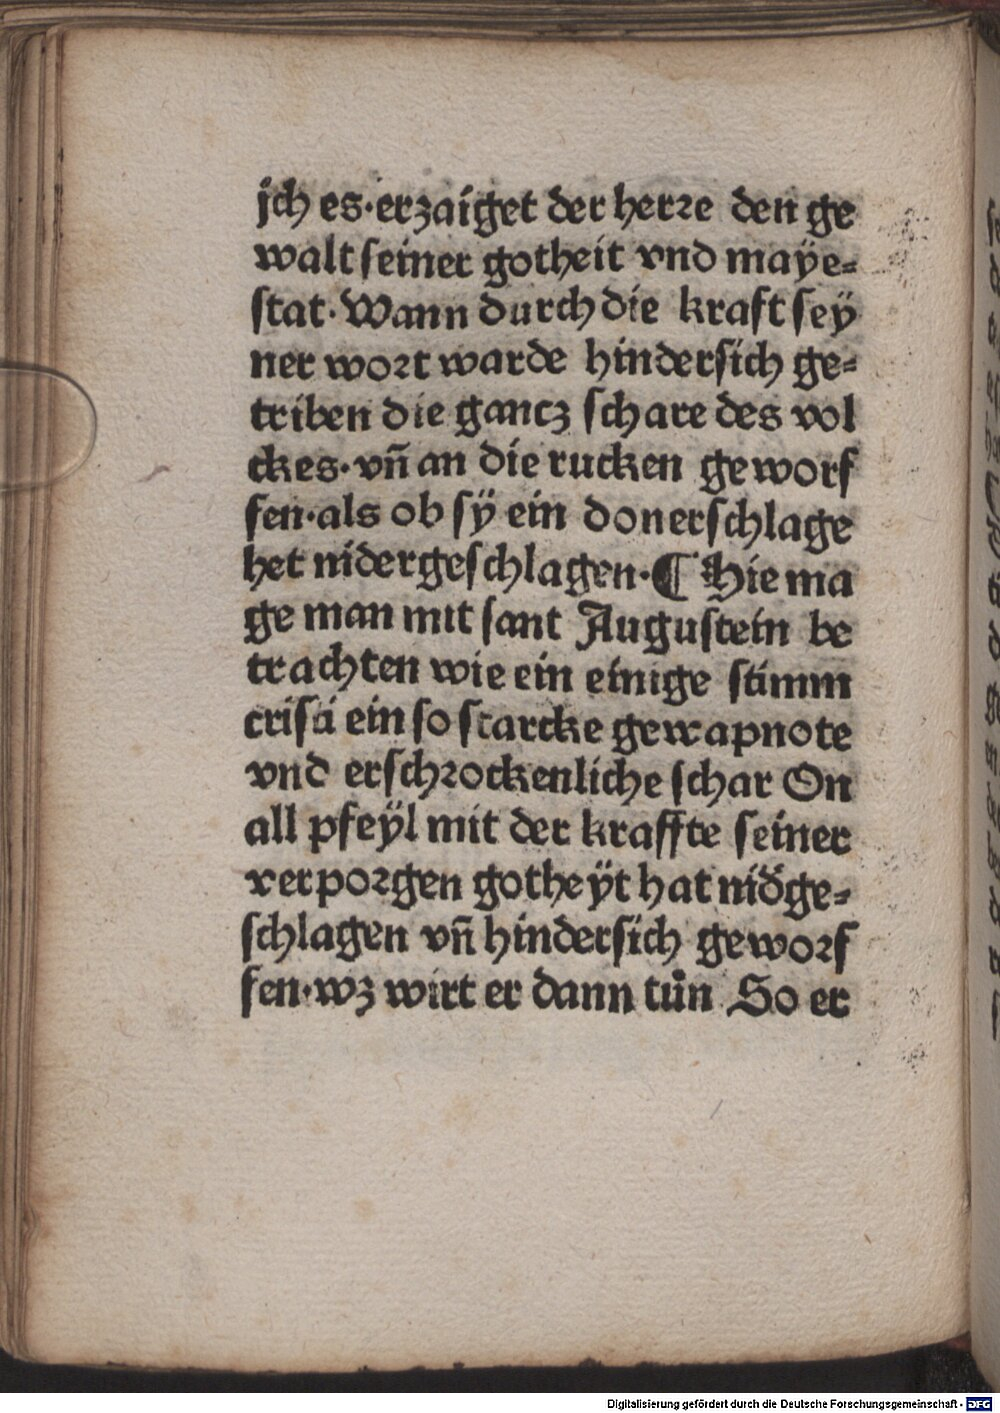 jch es·erzaiget der herꝛe den ge
walt seiner gotheit vnd maÿe⸗
stat·Wann durch die kraft seÿ
ner woꝛt warde hindersich ge⸗
triben die gancz schare des vol
ckes·vn̄ an die rucken geworf
fen·als ob sÿ ein donerschlage
het nidergeschlagen·¶ Hie ma
ge man mit sant Augustein be
trachten wie ein einige stimm
cristi ein so starcke gewapnote
vnd erschꝛockenliche schar On
all pfeÿl mit der kraffte seiner
verpoꝛgen gotheÿt hat nid᷑ge⸗
schlagen vn̄ hindersich gewoꝛf
fen·wz wirt er dann tůn So er
Digitalisierung gefördert durch die Deutsche Forschungsgemeinschaft - DFG